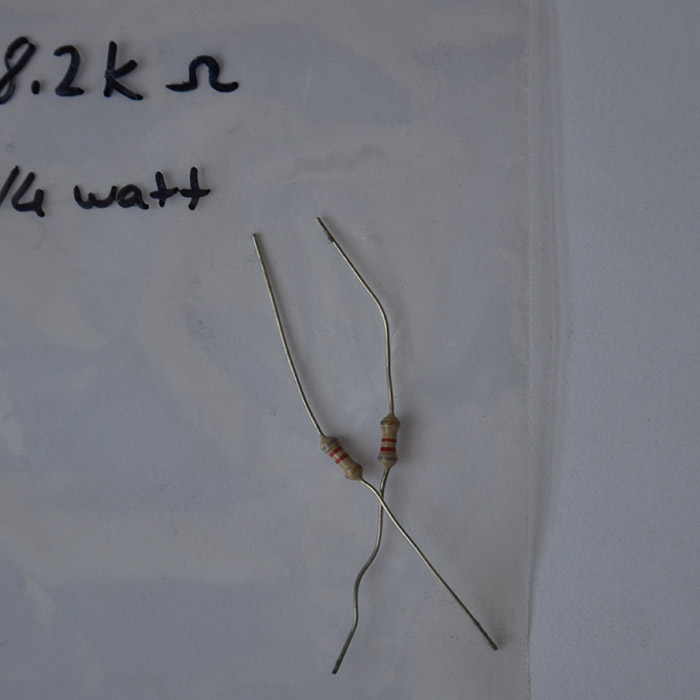 8.2k Ω
1/4 watt